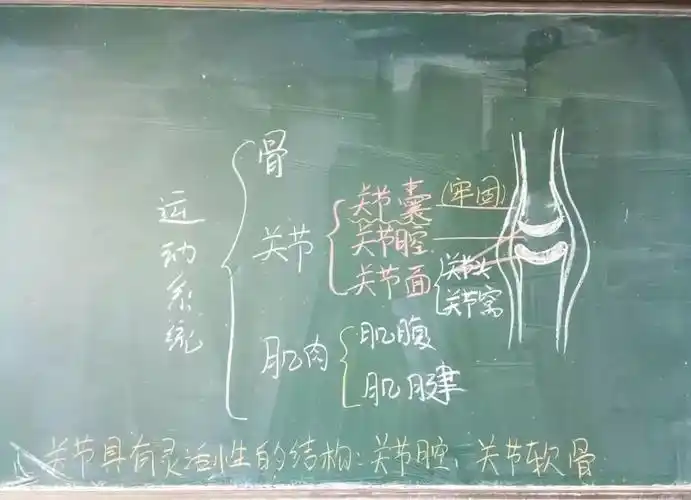 运动系统
骨
关节
关节囊 (牢固)
关节腔
关节面
关节头
关节窝
肌肉
肌腹
肌腱
关节具有灵活性的结构:关节腔、关节软骨